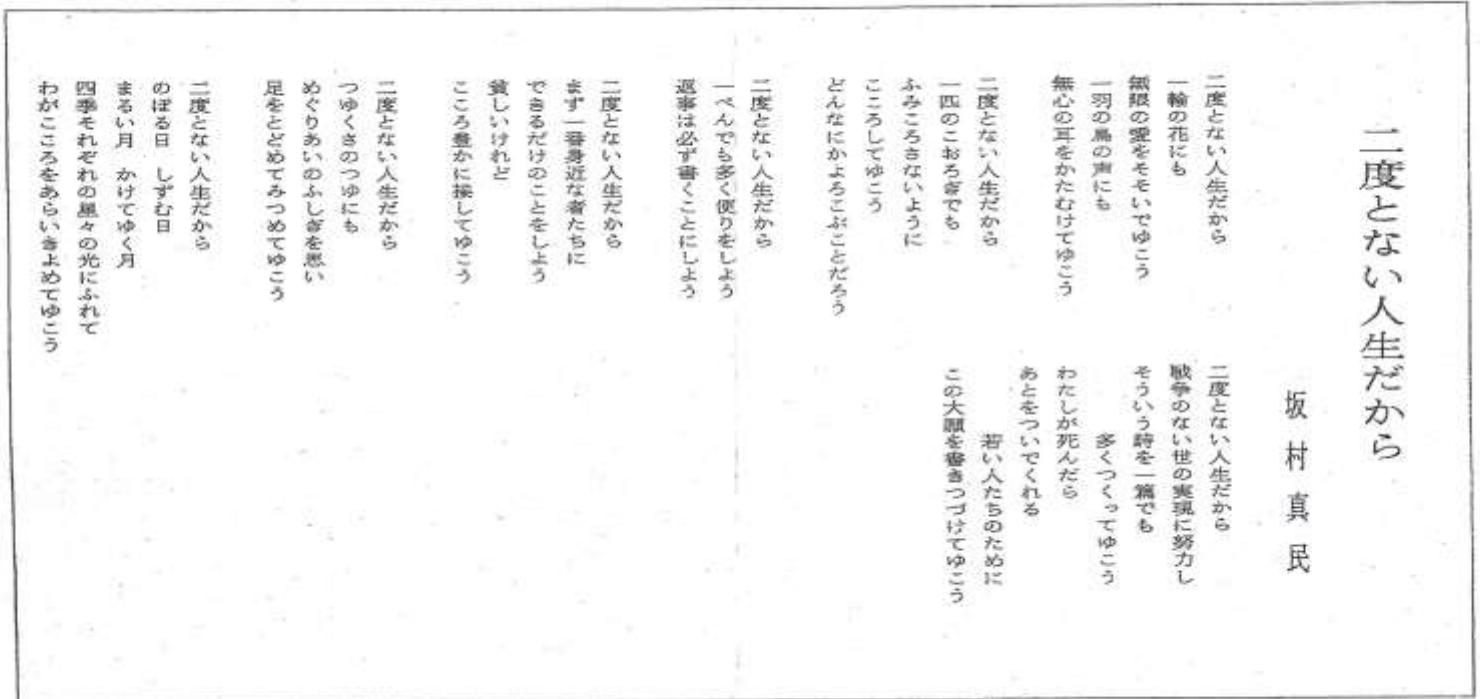 二度とない人生だから
坂村真民
二度とない人生だから
一輪の花にも
無限の愛をそそいでゆこう
一羽の鳥の声にも
無心の耳をかたむけてゆこう
二度とない人生だから
一匹のこおろぎでも
ふみころさないように
こころしてゆこう
どんなにかよろこぶことだろう
二度とない人生だから
一ぺんでも多く便りをしよう
返事は必ず書くことにしよう
二度とない人生だから
まず一番身近な者たちに
できるだけのことをしよう
貧しいけれど
こころ豊かに接してゆこう
二度とない人生だから
つゆくさのつゆにも
めぐりあいのふしぎを思い
足をとどめてみつめてゆこう
二度とない人生だから
のぼる日 しずむ日
まるい月 かけてゆく月
四季それぞれの星々の光にふれて
わがこころをあらいきよめてゆこう
二度とない人生だから
戦争のない世の実現に努力し
そういう詩を一篇でも
多くつくってゆこう
わたしが死んだら
あとをついでくれる
若い人たちのために
この大願を書きつづけてゆこう